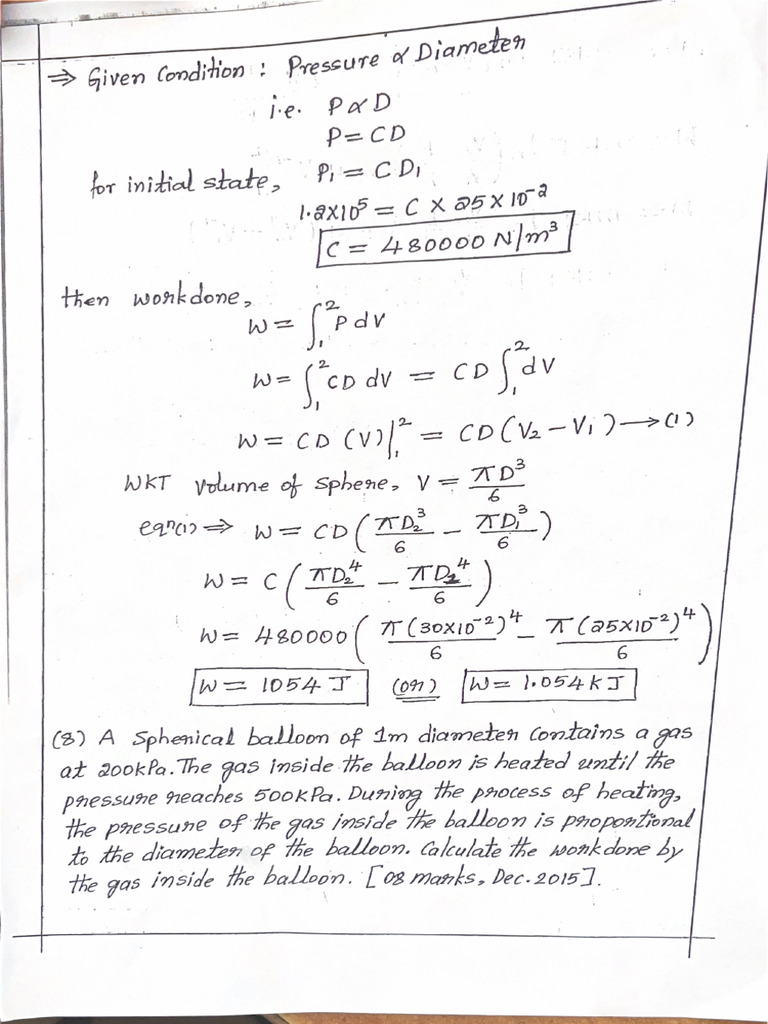 ⇒ Given Condition : Pressure ∝ Diameter
i.e. P∝D
P=CD
for initial state, P₁ = CD₁
1.2×10⁵ = C × 25×10⁻²
C = 480000 N/m³
then workdone,
W = ∫₁² P dV
W = ∫₁² CD dV = CD ∫₁² dV
W = CD (V)|₁² = CD(V₂ – V₁) → (1)
WKT volume of sphere, V = πD³/6
eqn(1) ⇒ W = CD (πD₂³/6 – πD₁³/6)
W = C (πD₂⁴/6 – πD₁⁴/6)
W = 480000 (π(30×10⁻²)⁴/6 – π(25×10⁻²)⁴/6)
W = 1054 J (or) W = 1.054 kJ
(8) A Spherical balloon of 1m diameter contains a gas
at 200kPa. The gas inside the balloon is heated until the
pressure reaches 500kPa. During the process of heating,
the pressure of the gas inside the balloon is proportional
to the diameter of the balloon. Calculate the workdone by
the gas inside the balloon. [08 marks, Dec. 2015].